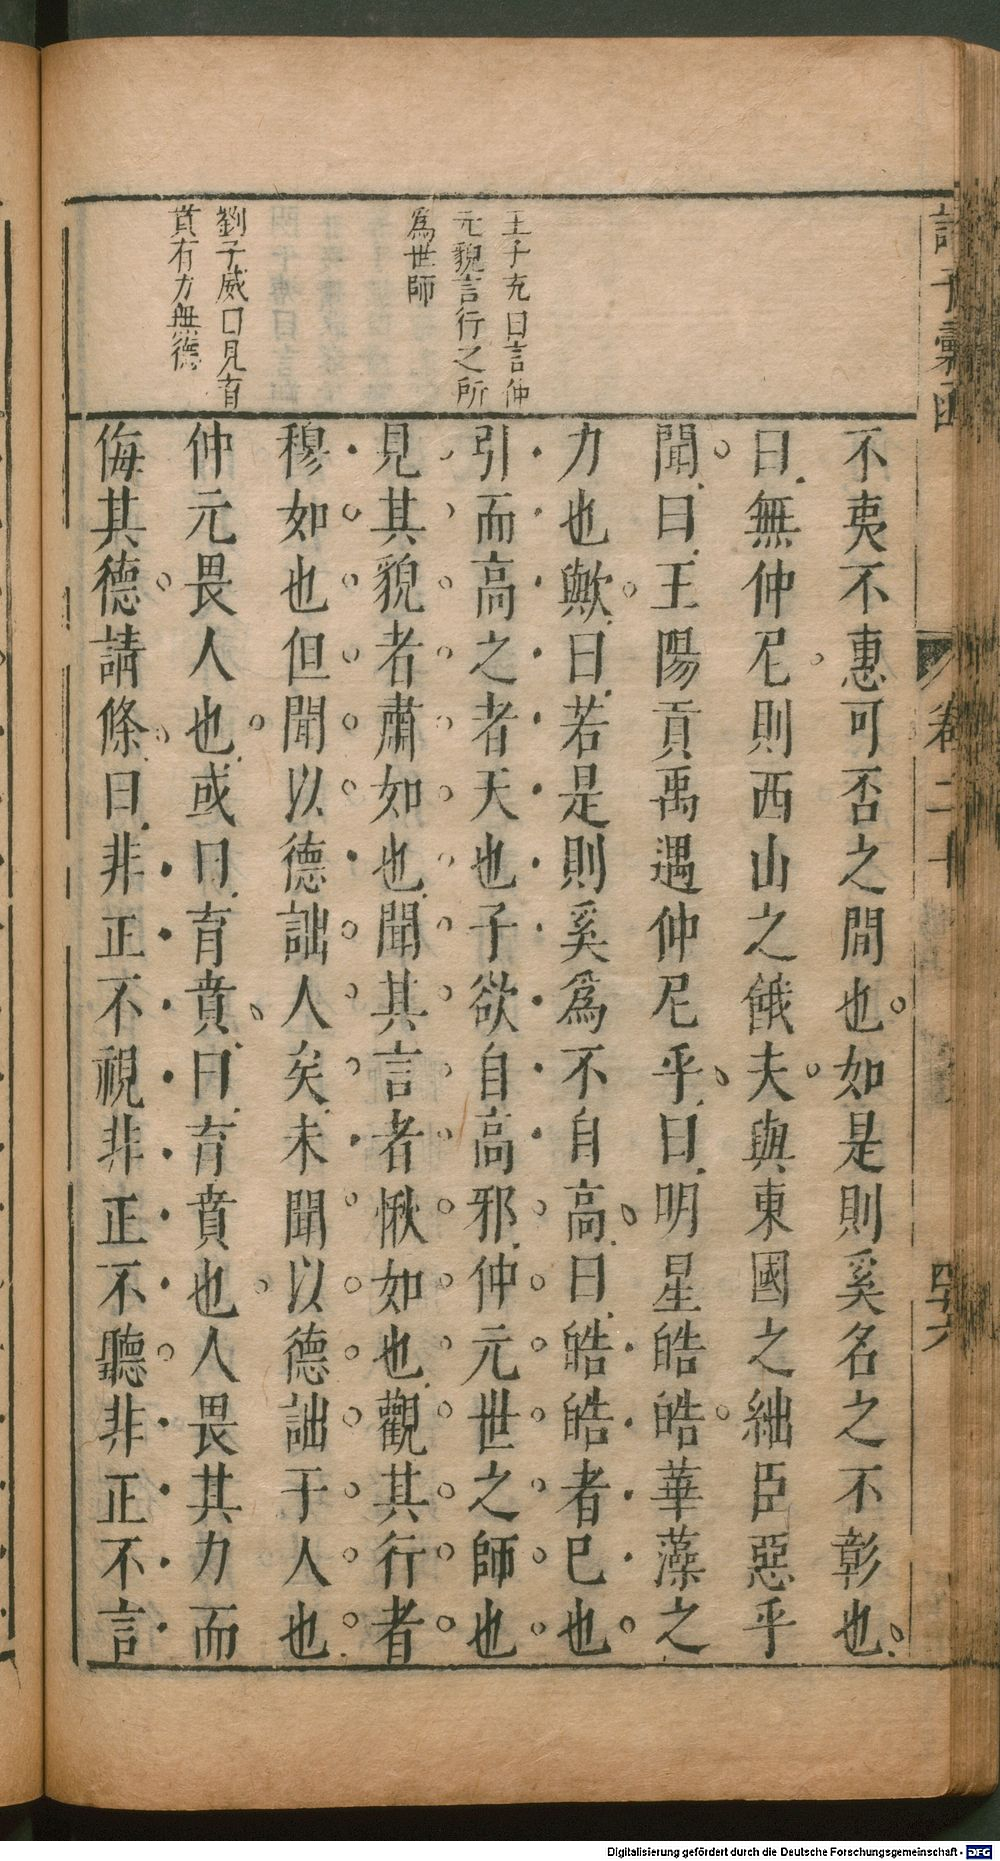 諸子彙函
卷二十
四十六
王子充曰言仲
元貌言行之所
爲世師
劉子威曰見育
賁有力無德
不夷不惠可否之間也如是則奚名之不彰也
曰無仲尼則西山之餓夫與東國之絀臣惡乎
聞曰王陽貢禹遇仲尼乎曰明星皓皓華藻之
力也歟曰若是則奚爲不自高曰皓皓者已也
引而高之者天也子欲自高邪仲元世之師也
見其貌者肅如也聞其言者愀如也觀其行者
穆如也但聞以德詘人矣未聞以德詘于人也
仲元畏人也或曰育賁曰育賁也人畏其力而
侮其德請條曰非正不視非正不聽非正不言
Digitalisierung gefördert durch die Deutsche Forschungsgemeinschaft - DFG